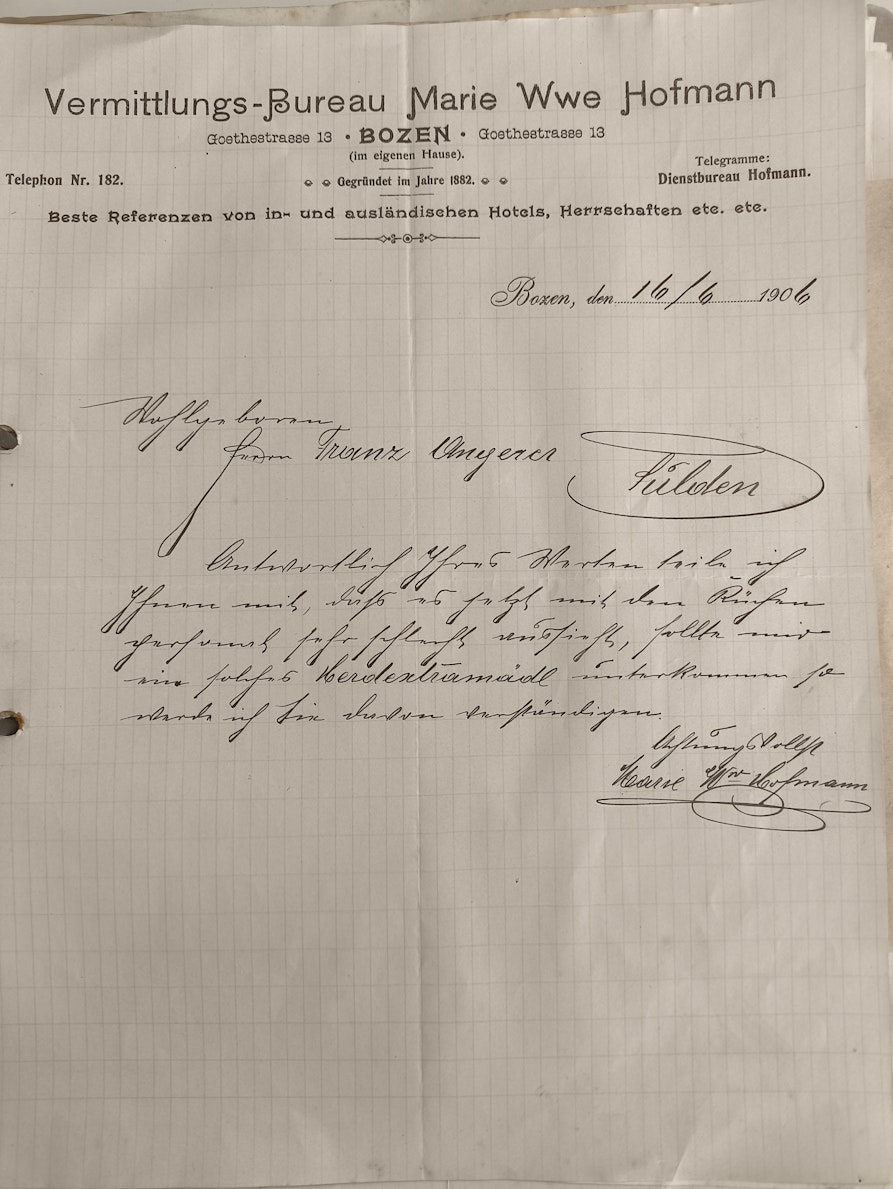 Vermittlungs-Bureau Marie Wwe Hofmann
Goethestrasse 13 • BOZEN • Goethestrasse 13
(im eigenen Hause).
Telephon Nr. 182.
Gegründet im Jahre 1882.
Telegramme:
Dienstbureau Hofmann.
Beste Referenzen von in- und ausländischen Hotels, Herrschaften etc. etc.
Bozen, den 16/6 1906
Wohlgeboren
Herrn Franz Angerer
Sulden
Antwortlich Ihres Werten teile ich
Ihnen mit, daß es jetzt mit den Küchen
personal sehr schlecht aussieht, sollte mir
ein solches Herdextramädl unterkommen so
werde ich Sie davon verständigen.
Achtungsvollst
Marie Ww Hofmann